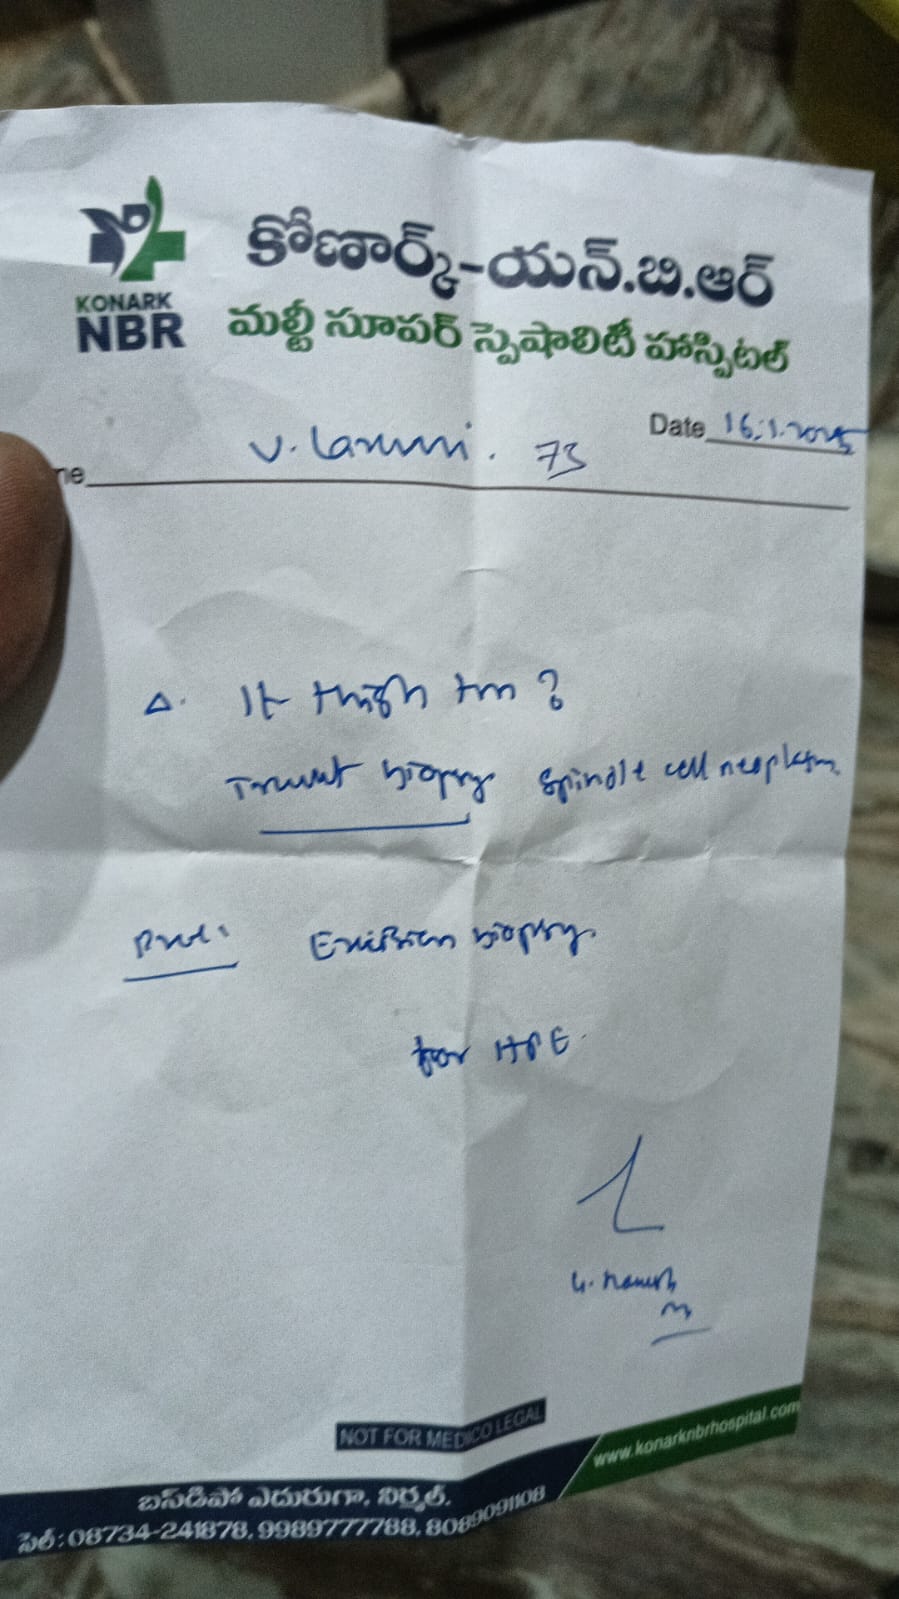 కోణార్క్-యన్.బి.ఆర్
KONARK
NBR
మల్టీ సూపర్ స్పెషాలిటీ హాస్పిటల్
Date 16.1.2025
ne V. Laxmi. 73
Δ. lt thigh tm?
Trucut biopsy spindle cell neoplasm.
Excision biopsy.
for HPE.
NOT FOR MEDICO LEGAL
www.konarknbrhospital.com
బస్‌డిపో ఎదురుగా, నిర్మల్.
సెల్: 08734-241878, 9989777788, 8089091108